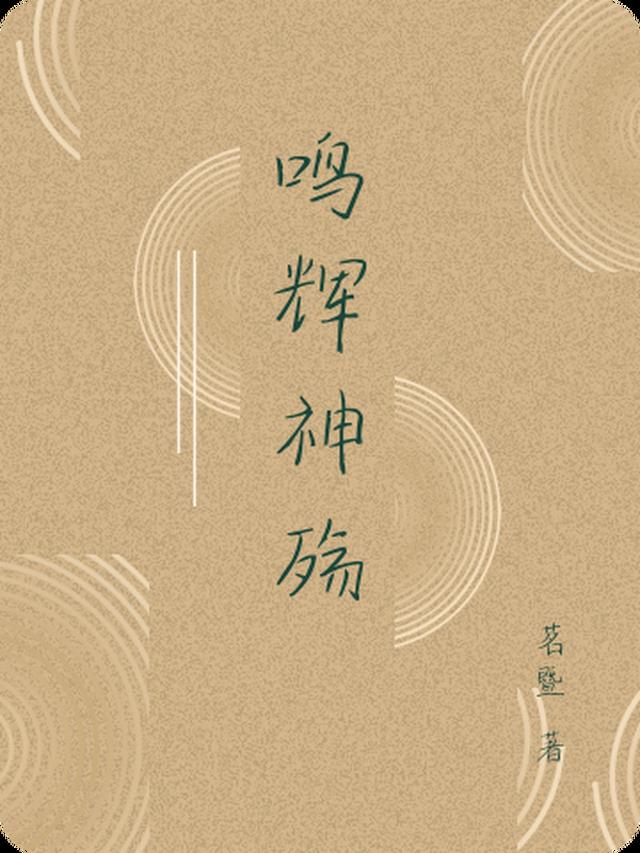 鸣辉神殇
茗暨 著